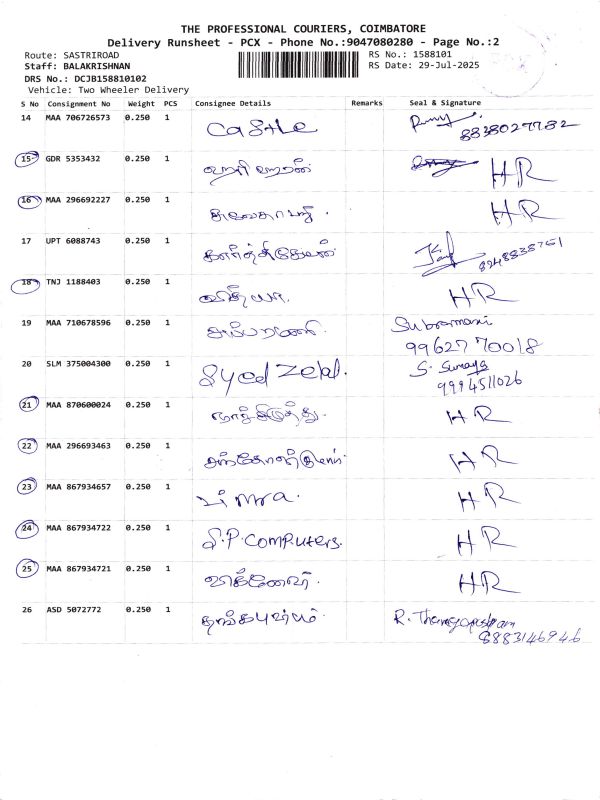 THE PROFESSIONAL COURIERS, COIMBATORE
Delivery Runsheet - PCX - Phone No.:9047080280 - Page No.:2
Route: SASTRIROAD RS No.: 1588101
Staff: BALAKRISHNAN RS Date: 29-Jul-2025
DRS No.: DCJB158810102
Vehicle: Two Wheeler Delivery
S No Consignment No Weight PCS Consignee Details Remarks Seal & Signature
14 MAA 706726573 0.250 1 Castle
8838027782
15 GDR 5353432 0.250 1 HR
16 MAA 296692227 0.250 1 HR
17 UPT 6088743 0.250 1 கார்த்திகேயன்
8248838761
18 TNJ 1188403 0.250 1 வித்யா. HR
19 MAA 710678596 0.250 1 சுப்ரமணி. Subramani
99627 70018
20 SLM 375004300 0.250 1 Syed Zelal. S. Sumaya
9994511026
21 MAA 870600024 0.250 1 நாச்சிமுத்து. HR
22 MAA 296693463 0.250 1 HR
23 MAA 867934657 0.250 1 Limra. HR
24 MAA 867934722 0.250 1 S.P. Computers. HR
25 MAA 867934721 0.250 1 விக்னேஷ். HR
26 ASD 5072772 0.250 1 தங்கபுஷ்பம். R. Thangapushpam
8883146946